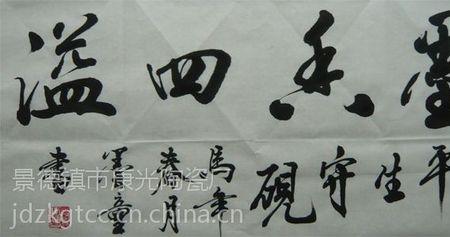 墨香四溢
平生守硯
馬年
春月
墨童
書
景德镇市康光陶瓷厂
jdzkgtcc.cn.china.cn